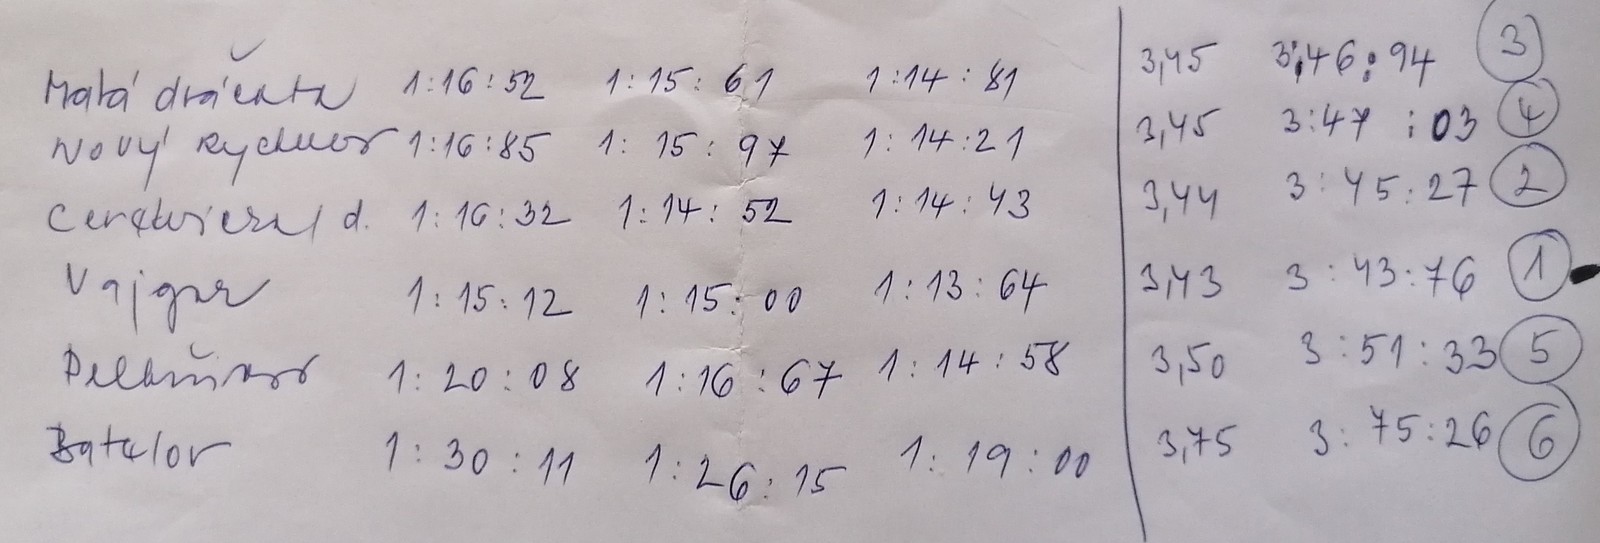 Malá dráčata 1:16:52 1:15:61 1:14:81 3,45 3:46:94 3
Nový Rychnov 1:16:85 1:15:97 1:14:21 3,45 3:47:03 4
d. 1:16:32 1:14:52 1:14:43 3,44 3:45:27 2
Vajgar 1:15:12 1:15:00 1:13:64 3,43 3:43:76 1
Pelhřimov 1:20:08 1:16:67 1:14:58 3,50 3:51:33 5
Batelov 1:30:11 1:26:15 1:19:00 3,75 3:75:26 6